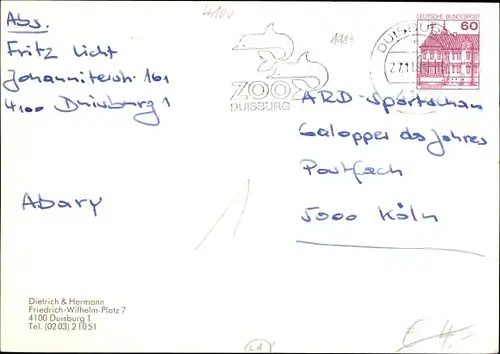 Abs.
Fritz Licht
Johanniterstr. 161
4100 Duisburg 1
Abary
4100
1984
ZOO
DUISBURG
DUISBURG
DEUTSCHE BUNDESPOST
60
ARD-Sportschau
Galopper des Jahres
Postfach
5000 Köln
Dietrich & Hermann
Friedrich-Wilhelm-Platz 7
4100 Duisburg 1
Tel. (0203) 21051
LA
€ 4.-